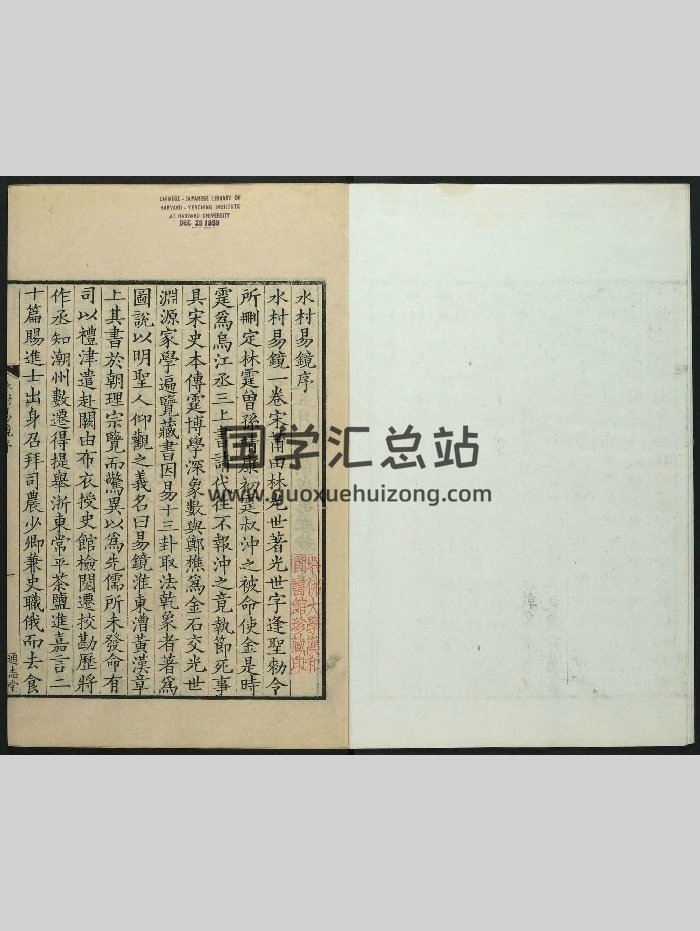 CHINESE - JAPANESE LIBRARY OF
HARVARD - YENCHING INSTITUTE
AT HARVARD UNIVERSITY
DEC 28 1939
水村易鏡序
水村易鏡一卷宋莆田林光世著光世字逢聖勅令
所刪定林霆曽孫靖康初霆叔沖之被命使金是時
霆爲烏江丞三上書請代往不報沖之竟執節死事
具宋史本傳霆博學深象數與鄭樵爲金石交光世
淵源家學遍覽藏書因易十三卦取法乾象者著爲
圖說以明聖人仰觀之義名曰易鏡淮東漕黃漢章
上其書於朝理宗覽而驚異以爲先儒所未發命有
司以禮津遣赴闕由布衣授史館檢閱遷挍勘歷將
作丞知潮州數遷得提舉浙東常平茶鹽進嘉言二
十篇賜進士出身召拜司農少卿兼史職俄而去食
一
通志堂
哈佛大學漢和
圖書館珍藏印
国学汇总站
www.guoxuehuizong.com